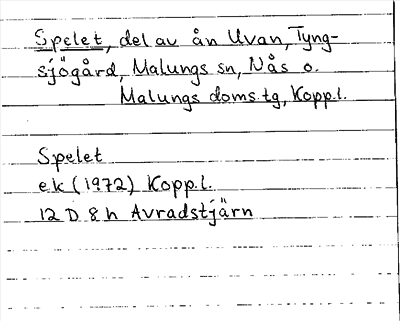 Spelet, del av ån Uvan, Tyng-
sjögård, Malungs sn, Nås o.
Malungs doms.tg, Kopp.l.
Spelet
ek (1972) Kopp.l.
12 D 8 h Avradstjärn